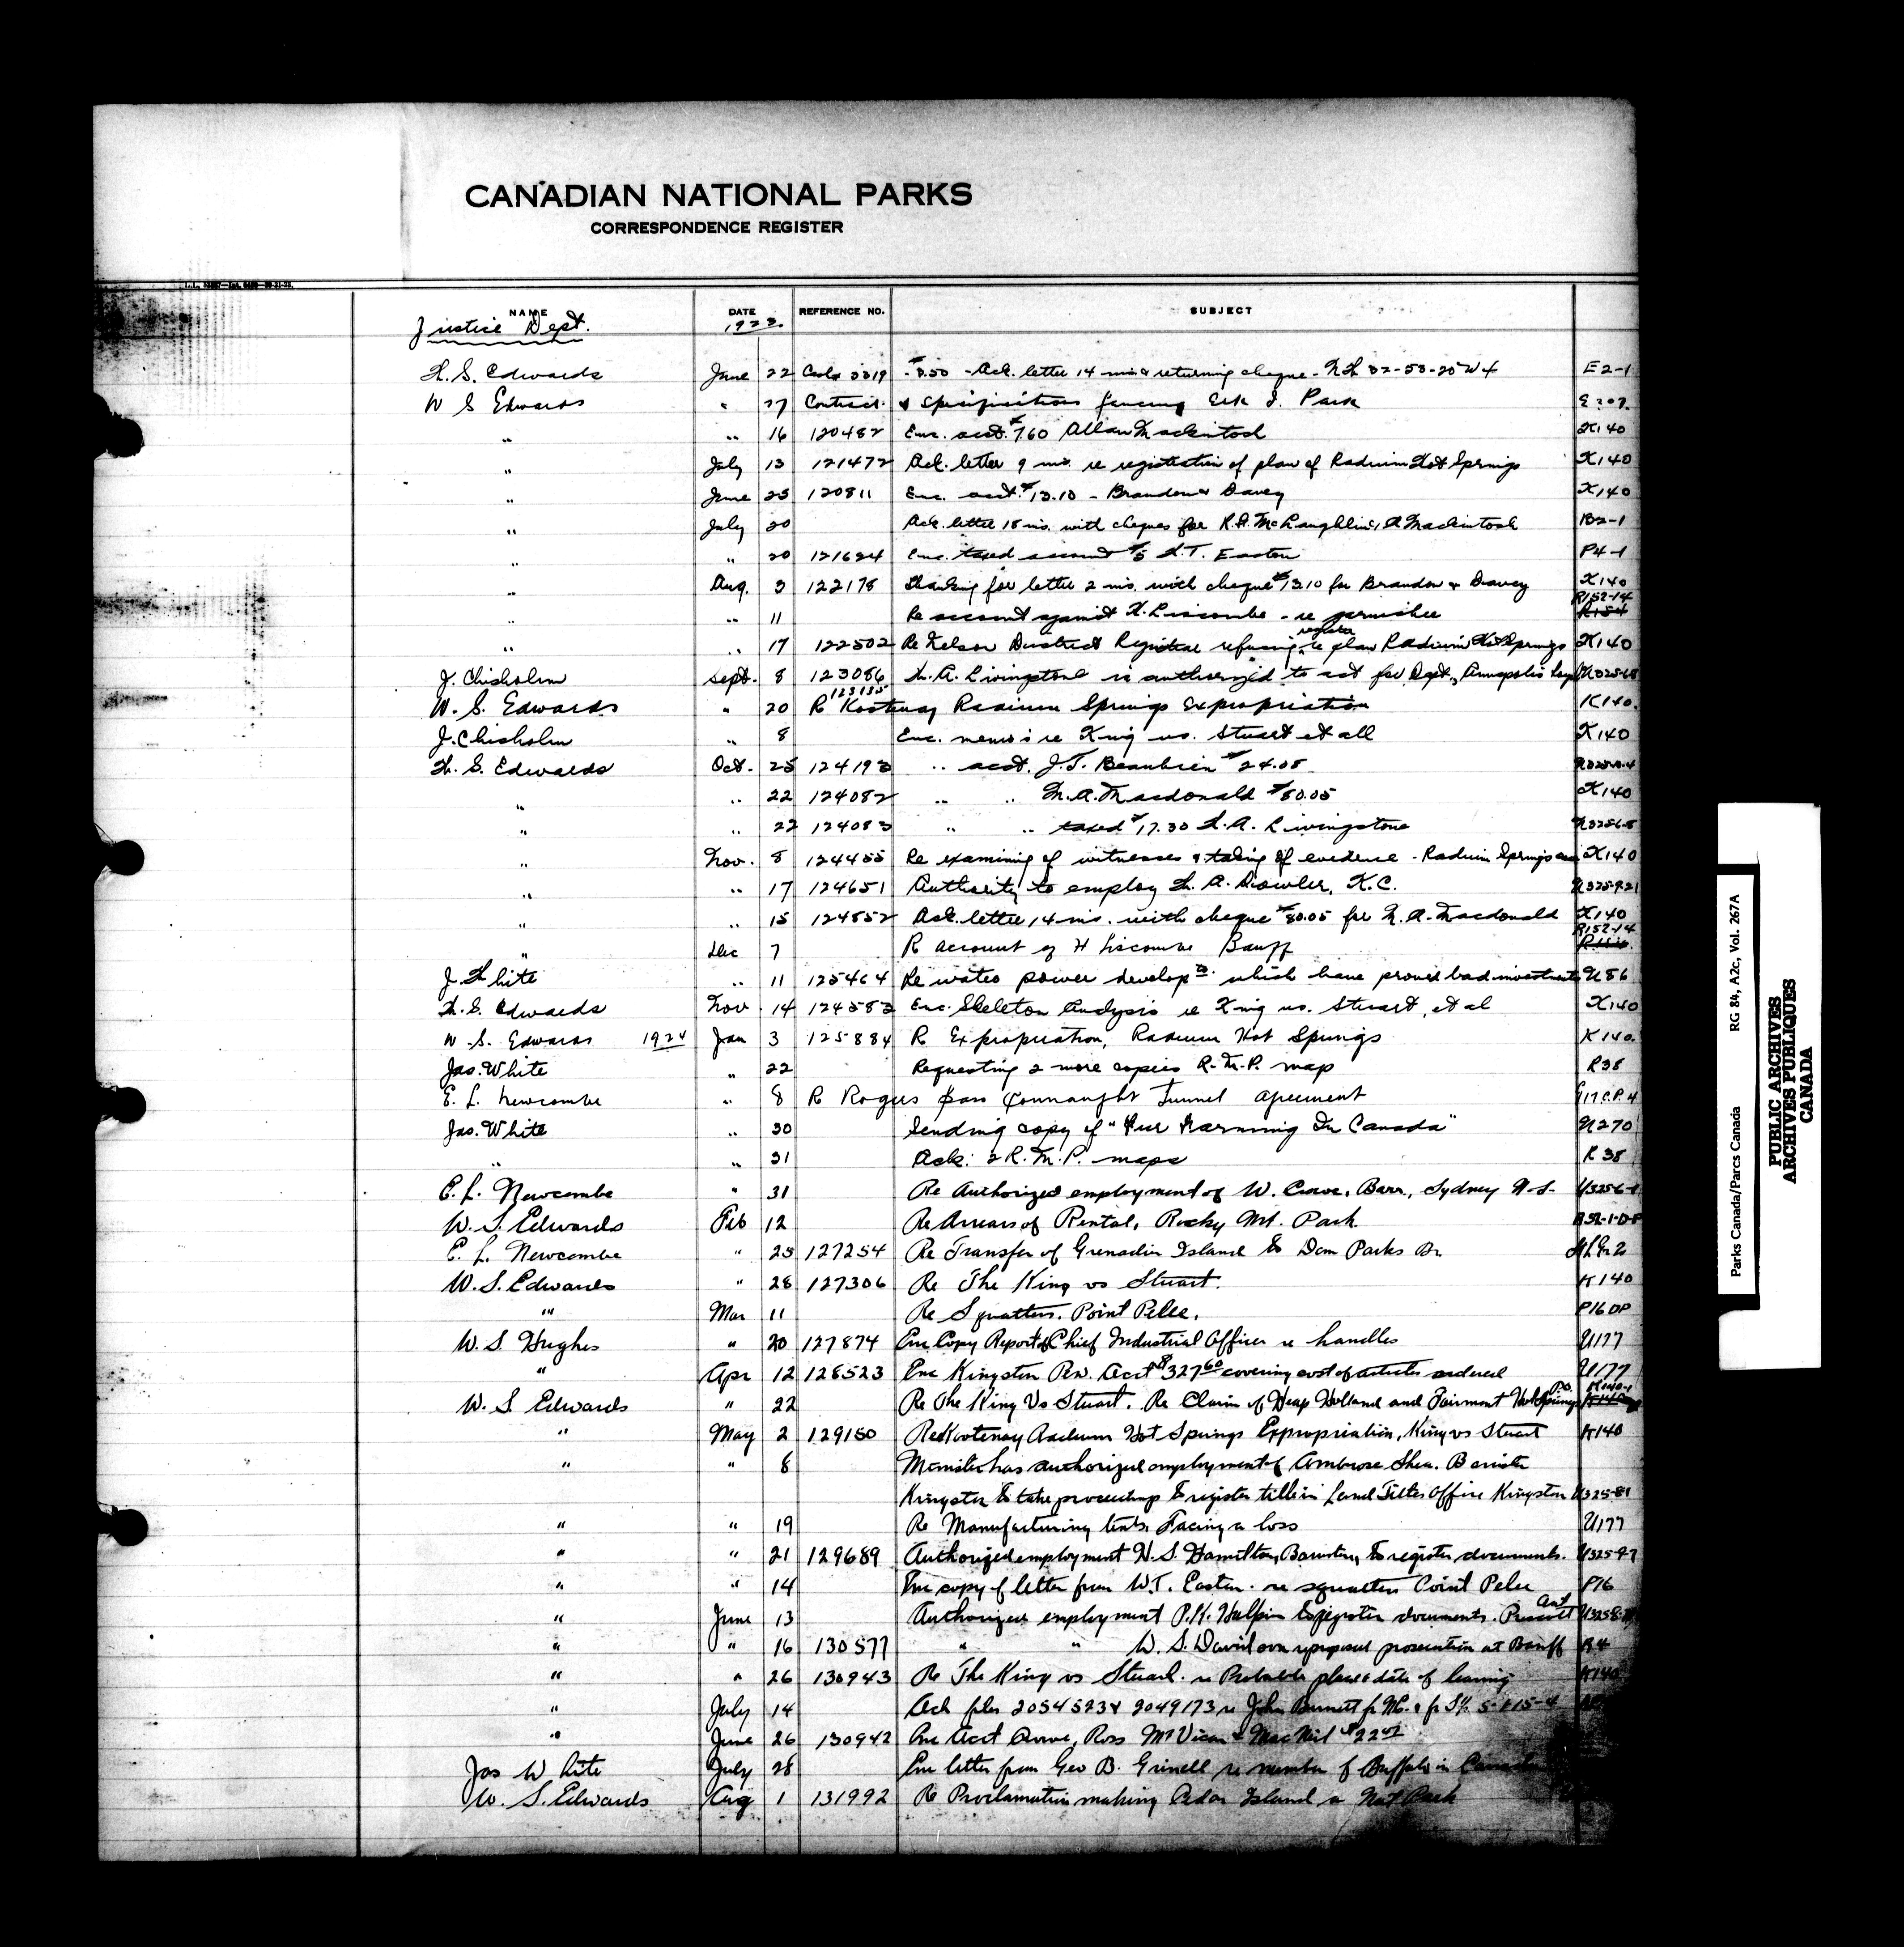 CANADIAN NATIONAL PARKS
CORRESPONDENCE REGISTER
NAME DATE REFERENCE NO. SUBJECT
Justice Dept. 1923.
W. S. Edwards June 22 Cash 3319 - $3.50 - Ack. letter 14 ins. returning cheque - 32-53-20 W 4 E2-1
W S Edwards " 27 Contract & specifications fencing Elk I. Park E207.
" " 16 120482 Enc. acct. $7.60 Allan Mackintosh K140
" July 13 121472 Ack. letter 9 ins. re registration of plan of Radium Hot Springs K140
" June 25 120811 Enc. acct. $13.10 - Brandon & Davey K140
" July 20 Ack. letter 18 ins. with cheques for R.A. McLaughlin, A Mackintosh B2-1
" " 20 121624 Enc. taxed account $5 L.T. Easton P4-1
" Aug. 3 122178 Thanking for letter 2 ins. with cheque $13.10 for Brandon & Davey K140
" " 11 Re account against H. Liscombe - re garnishee R152-14
" " 17 122502 Re Nelson District Registrar refusing register re plan Radium Hot Springs K140
J. Chisholm Sept. 8 123086 W. A. Livingstone is authorized to act for Dept., Annapolis U325-6-8
W. S. Edwards " 20 123185 R Kootenay Radium Springs Expropriation K140.
J. Chisholm " 8 Enc. memo's re King vs. Stuart et all K140
W. S. Edwards Oct. 25 124193 " acct. J.T. Beaubien $24.05
" " 22 124082 " " M.A. Macdonald $80.05 K140
" " 22 124083 " " taxed $17.30 L.A. Livingstone U325-6-8
" Nov. 8 124455 Re examining of witnesses & taking of evidence - Radium Springs case K140
" " 17 124651 Authority to employ W. A. Dowler, K.C. U325-9-21
" " 15 124852 Ack. letter 14 ins. with cheque $80.05 for M. A. Macdonald K140
" Dec 7 R account of H Liscombe Banff R152-14
J. White " 11 125464 Re water power developm. which have proved bad investments U86
W. S. Edwards Nov 14 124583 Enc. Skeleton Analysis re King vs. Stuart, et al K140
W. S. Edwards 1924 Jan 3 125884 R Expropriation, Radium Hot Springs K140.
Jas. White " 22 Requesting 2 more copies R.M.P. map R38
E. L. Newcombe " 8 R Rogers Pass Connaught Tunnel agreement G17 C.P. 4
Jas. White " 30 Sending copy of "Fur Farming In Canada" U270
" " 31 Ack: 2 R.M.P. maps R38
E. L. Newcombe " 31 Re Authorized employment of W. Crowe, Barr., Sydney N.S. U325-6-1
W. S. Edwards Feb 12 Re Arrears of Rental, Rocky Mt. Park
E. L. Newcombe " 25 127254 Re Transfer of Grenadier Island to Dom Parks Br.
W. S. Edwards " 28 127306 Re The King vs Stuart. K140
" Mar 11 Re Squatters. Point Pelee. P16 DP
W. S. Hughes " 20 127874 Enc Copy Report of Chief Industrial Officer re handles U177
" Apr 12 128523 Enc Kingston Pen. Acct $327.60 covering cost of articles ordered U177
W. S. Edwards " 22 Re The King Vs Stuart. Re Claim of Heap Holland and Fairmont Hot Springs K140-1
" May 2 129150 Re Kootenay Radium Hot Springs Expropriation, King vs Stuart K140
" " 8 Minister has authorized employment of Ambrose Shea. Barrister
Kingston to take proceedings to register title in Land Titles Office Kingston U325-81
" " 19 Re Manufacturing tents. Facing a loss U177
" " 21 129689 Authorized employment H. S. Hamilton, Barrister, to register documents. U325-9-7
" " 14 Enc copy of letter from W.T. Easton. re squatters Point Pelee P16
" June 13 Authorizes employment P.K. Halpin to register documents. Prescott Ont
" " 16 130577 " " W. S. Davidson re proposed prosecution at Banff R4
" " 26 130943 Re The King vs Stuart. re Probable place & date of hearing K140
" July 14 Ack files 2054523 & 2049173 re John Burnett
" June 26 130942 Enc Acct Crowe, Ross McVicar & MacNeil
Jas White July 28 Enc letter from Geo B. Grinell re number of Buffalo in Canada
W. S. Edwards Aug 1 131992 Re Proclamation making Cedar Island a Nat Park
Parks Canada/Parcs Canada RG 84, A2c, Vol. 267A
PUBLIC ARCHIVES
ARCHIVES PUBLIQUES
CANADA